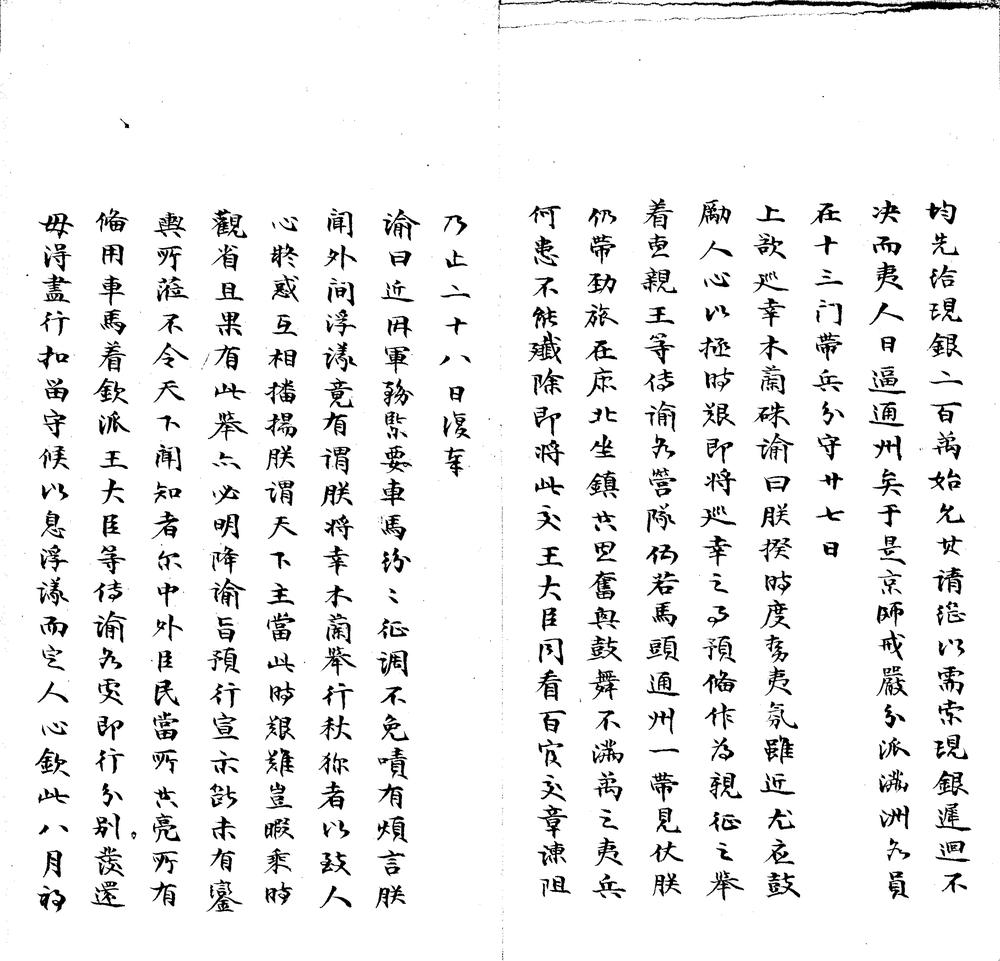 均先给現銀二百萬始允其请继以需索現銀遲迴不
决而夷人日逼通州矣于是京師戒嚴分派满洲各員
在十三门帶兵分守廿七日
上欲巡幸木蘭硃谕曰朕揆時度势夷氛雖近尤应鼓
勵人心以拯時艱即將巡幸之事預俻作為親征之舉
着惠親王等傳谕各營隊伍若馬頭通州一帶見仗朕
仍帶劲旅在京北坐鎮共思奮興鼓舞不满萬之夷兵
何患不能殲除即將此交王大臣同看百官交章諫阻
乃止二十八日復奉
谕曰近因軍務緊要車馬纷〻征调不免嘖有煩言朕
聞外间浮議竟有谓朕将幸木蘭舉行秋獮者以致人
心疑惑互相播揚朕谓天下主當此時艱難豈暇乘時
觀省且果有此舉亦必明降谕旨預行宣示断未有鑾
輿所蒞不令天下聞知者尔中外臣民當所共亮所有
俻用車馬着欽派王大臣等傳谕各處即行分别。發還
毋得盡行扣留守候以息浮議而定人心欽此八月初